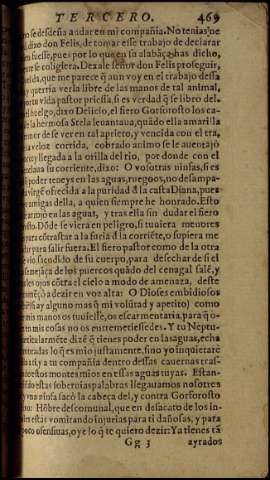 TERCERO. 469
se desdeña andar en mi compañia. No tenias ne
dixo don Felis, de tomar esse trabajo de declarar
fuesse, pues por lo que en su alabãça has dicho,
se coligiera. Dexa le señor don Felis prosiguis,
que me parece q̃ aun voy en el trabajo dessa
querria verla libre de las manos de tal animal,
tu vida pastor priessa, si es verdad q̃ se libro del.
hidgo, dixo Delicio, el fiero Gorforosto los ca-
la hermosa Stela leuantaua, quãdo ella amarilla
de se ver en tal aprieto, y vencida con el tra,
veloz corrida, cobrado animo se le auentajò
y llegada a la orilla del rio, por donde con el
su corriente, dixo: O vosotras ninfas, si es
poder teneys en las aguas, ruegoos, no desampa-
ofrecida a la puridad d̃ la casta Diana, pues
amigas della, a quien siempre he honrado. Esto
arrojo en las aguas, y tras ella sin dudar el fiero
Dõde se viera en peligro, si tuuiera menores
cõtrastar a la furia d̃ la corriẽte, o supiera me
para salir fuera. El fiero pastor como de la otra
sacudido de su cuerpo, para desechar de si el
semejãça de los puercos quãdo del cenagal salẽ, y
ojos cõtra el cielo a modo de amenaza, deste
a dezir en voz alta: O Dioses embidiosos
alguno mas q̃ mi volũtad y apetito) como
mis manos os tuuiesse, os escarmentaria, para q̃
mis cosas no os entremetiessedes. Y tu Neptu-
dizẽ q̃ tienes poder en las aguas, echa
lo q̃ es mio justamente, sino yo inquietarè
y a tu compañia dentro dessas cauernas tras-
montes mios en essas aguas tuyas. Estan-
estas soberuias palabras lleguamos nosotros
vna ninfa sacò la cabeça del, y contra Gorforosto
Hõbre descomunal, que en desacato de los in-
estas vomitando injurias para ti dañosas, y para
poco ofensiuas, oye lo q̃ te quiero dezir: Ya tienes tã
Gg 3 ayrados